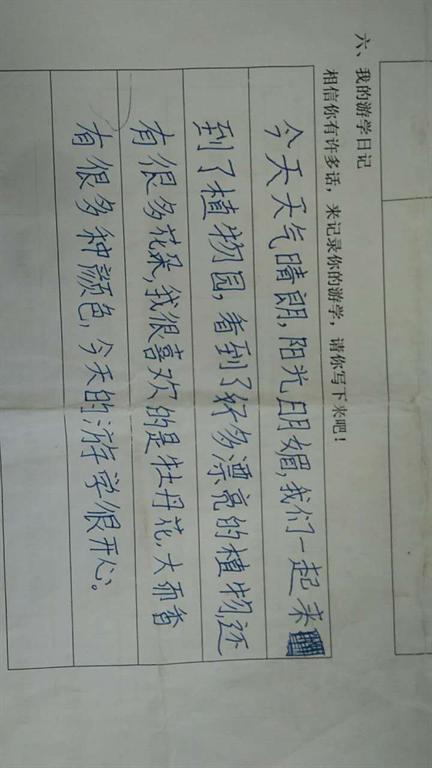 六、我的游学日记
相信你有许多话，来记录你的游学，请你写下来吧！
今天天气晴朗，阳光明媚，我们一起来
到了植物园，看到了好多漂亮的植物还
有很多花朵，我很喜欢的是牡丹花，大而香
有很多种颜色，今天的游学很开心。